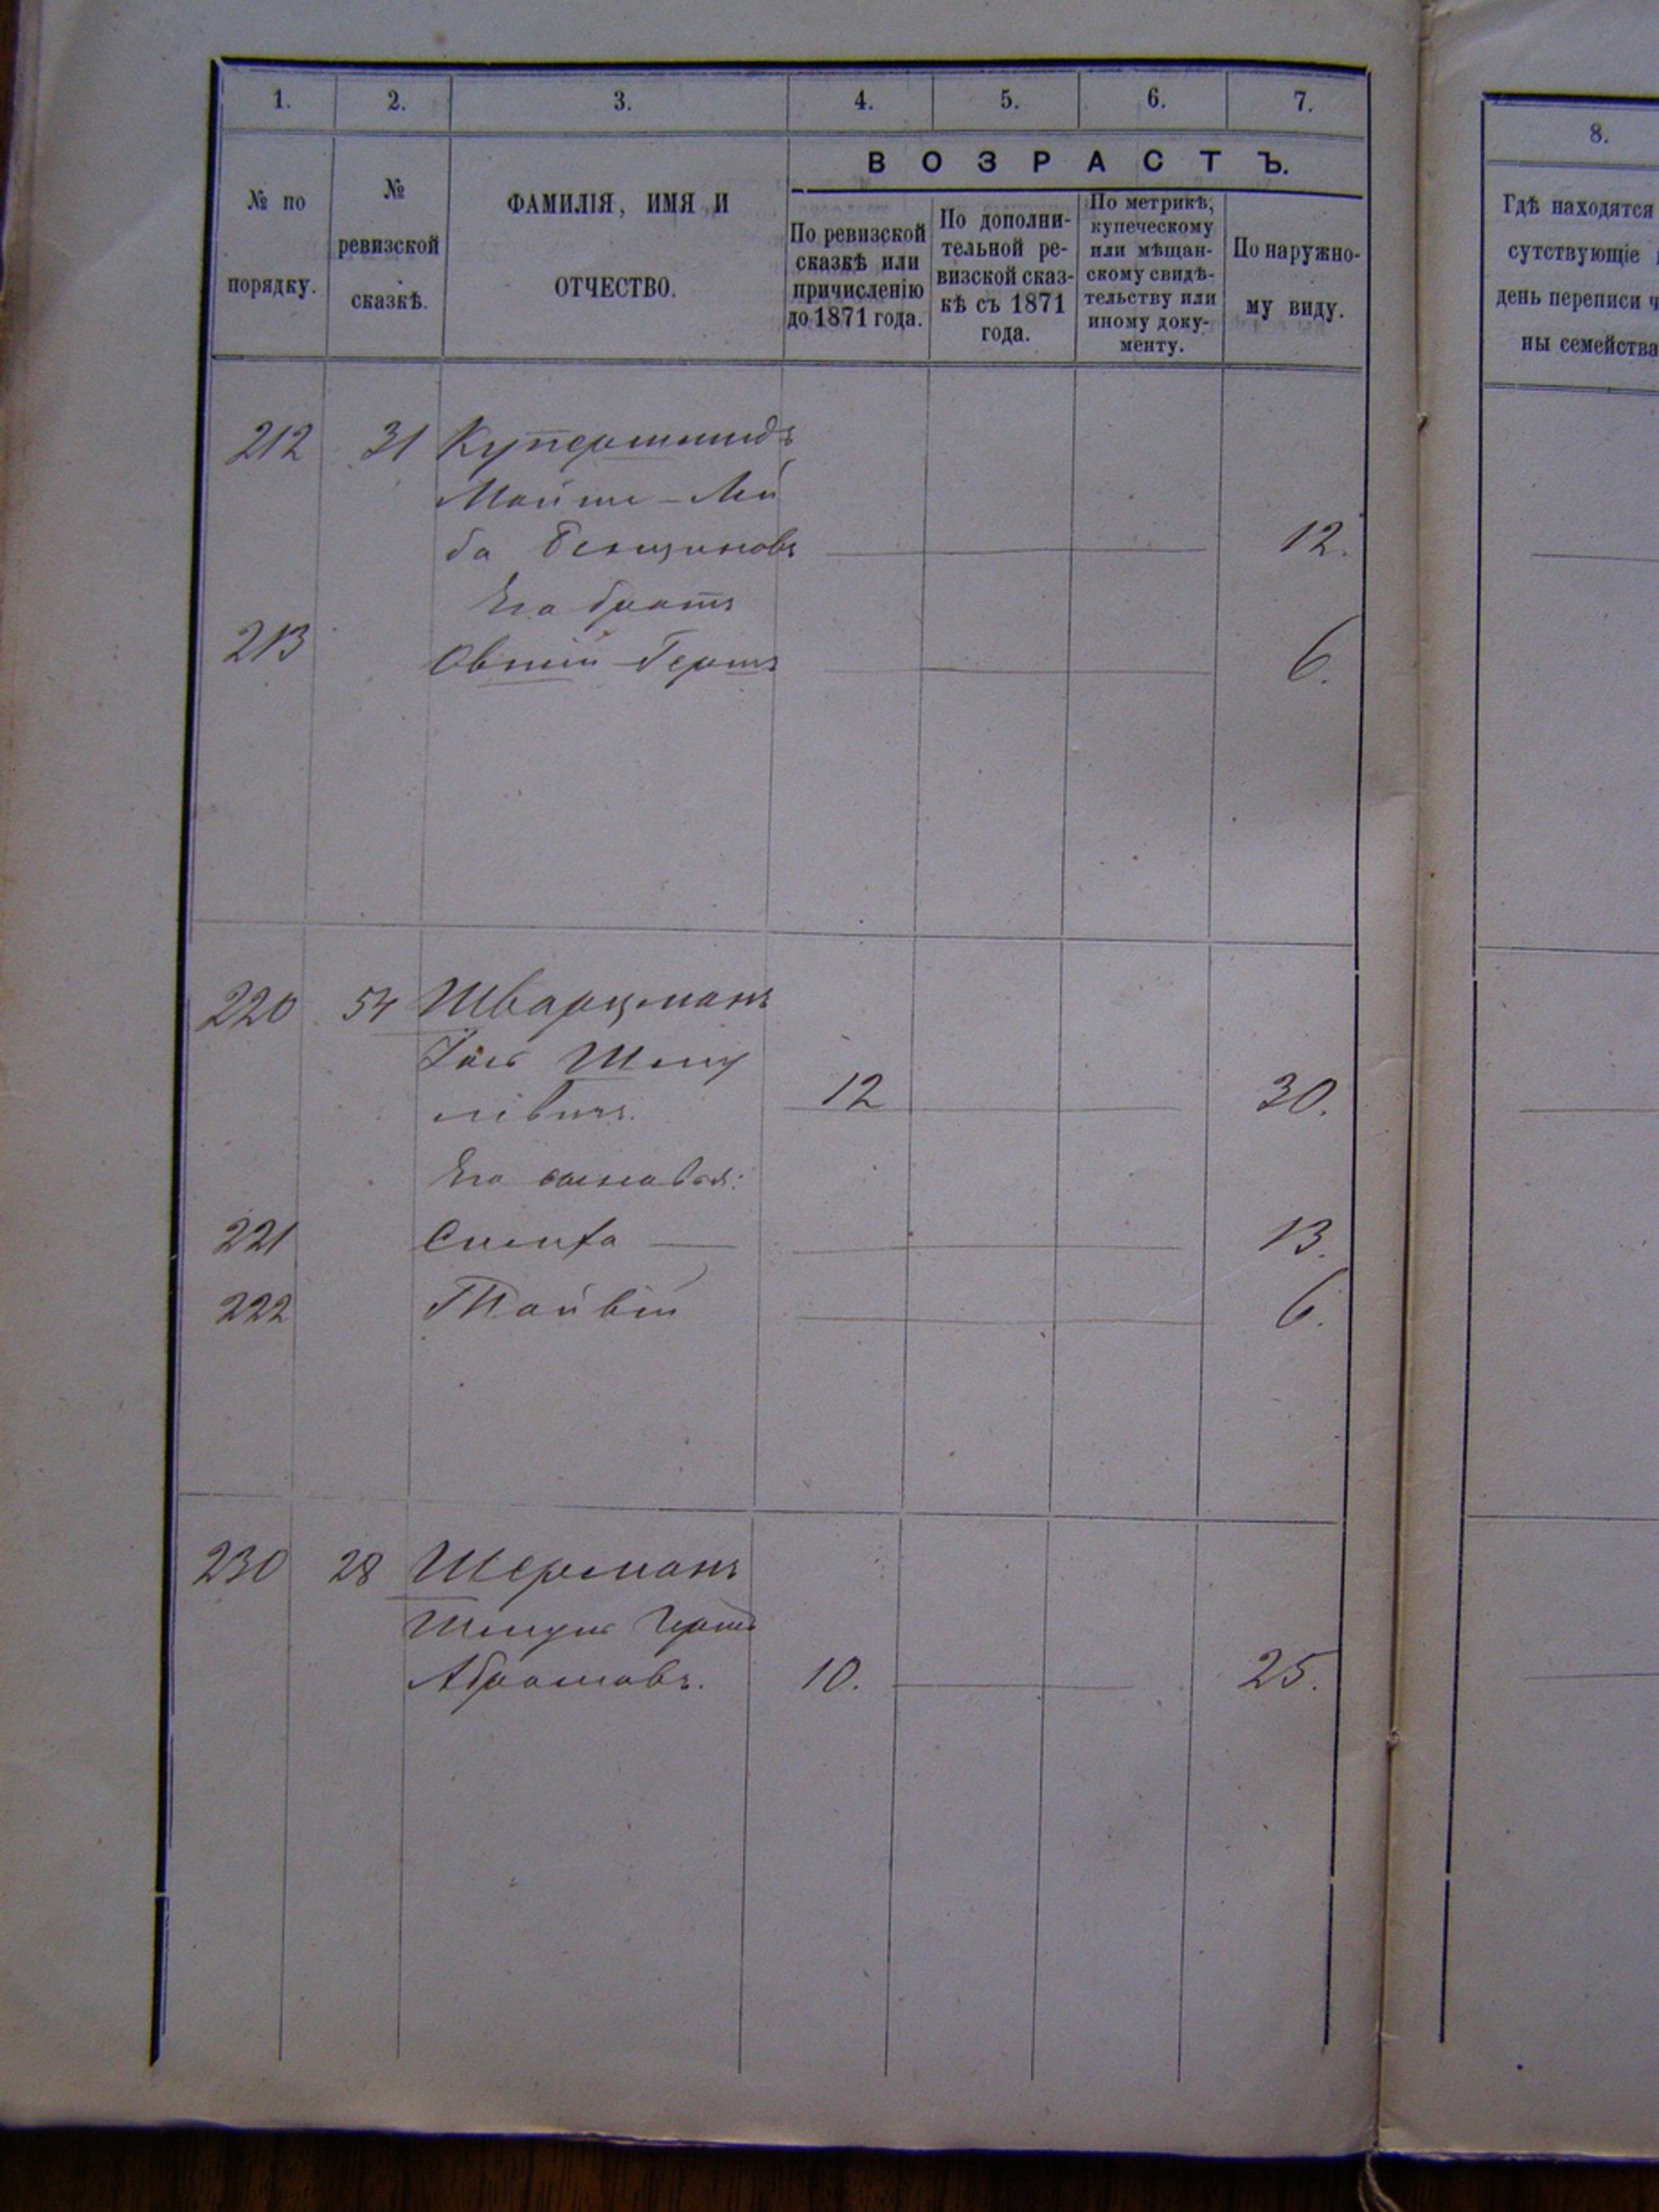 1. 2. 3. 4. 5. 6. 7.
№ по
порядку.
№
ревизской
сказкѣ.
ФАМИЛІЯ, ИМЯ И
ОТЧЕСТВО.
ВОЗРАСТЪ.
По ревизской
сказкѣ или
причисленію
до 1871 года.
По дополни-
тельной ре-
визской сказ-
кѣ съ 1871
года.
По метрикѣ,
купеческому
или мѣщан-
скому свидѣ-
тельству или
иному доку-
менту.
По наружно-
му виду.
212 31 Купершмидъ
Мойше-Лей
ба Бенціоновъ 12.
Его братъ
213 Овшій-Гершъ 6.
220 54 Шварцманъ
Іось Шму
левичъ. 12 30.
Его сыновья:
221 Симха 13.
222 Тойвій 6.
230 28 Шерманъ
Шмуль
Абрамовъ. 10. 25.
8.
Гдѣ находятся
сутствующіе
день переписи ч
ны семейства